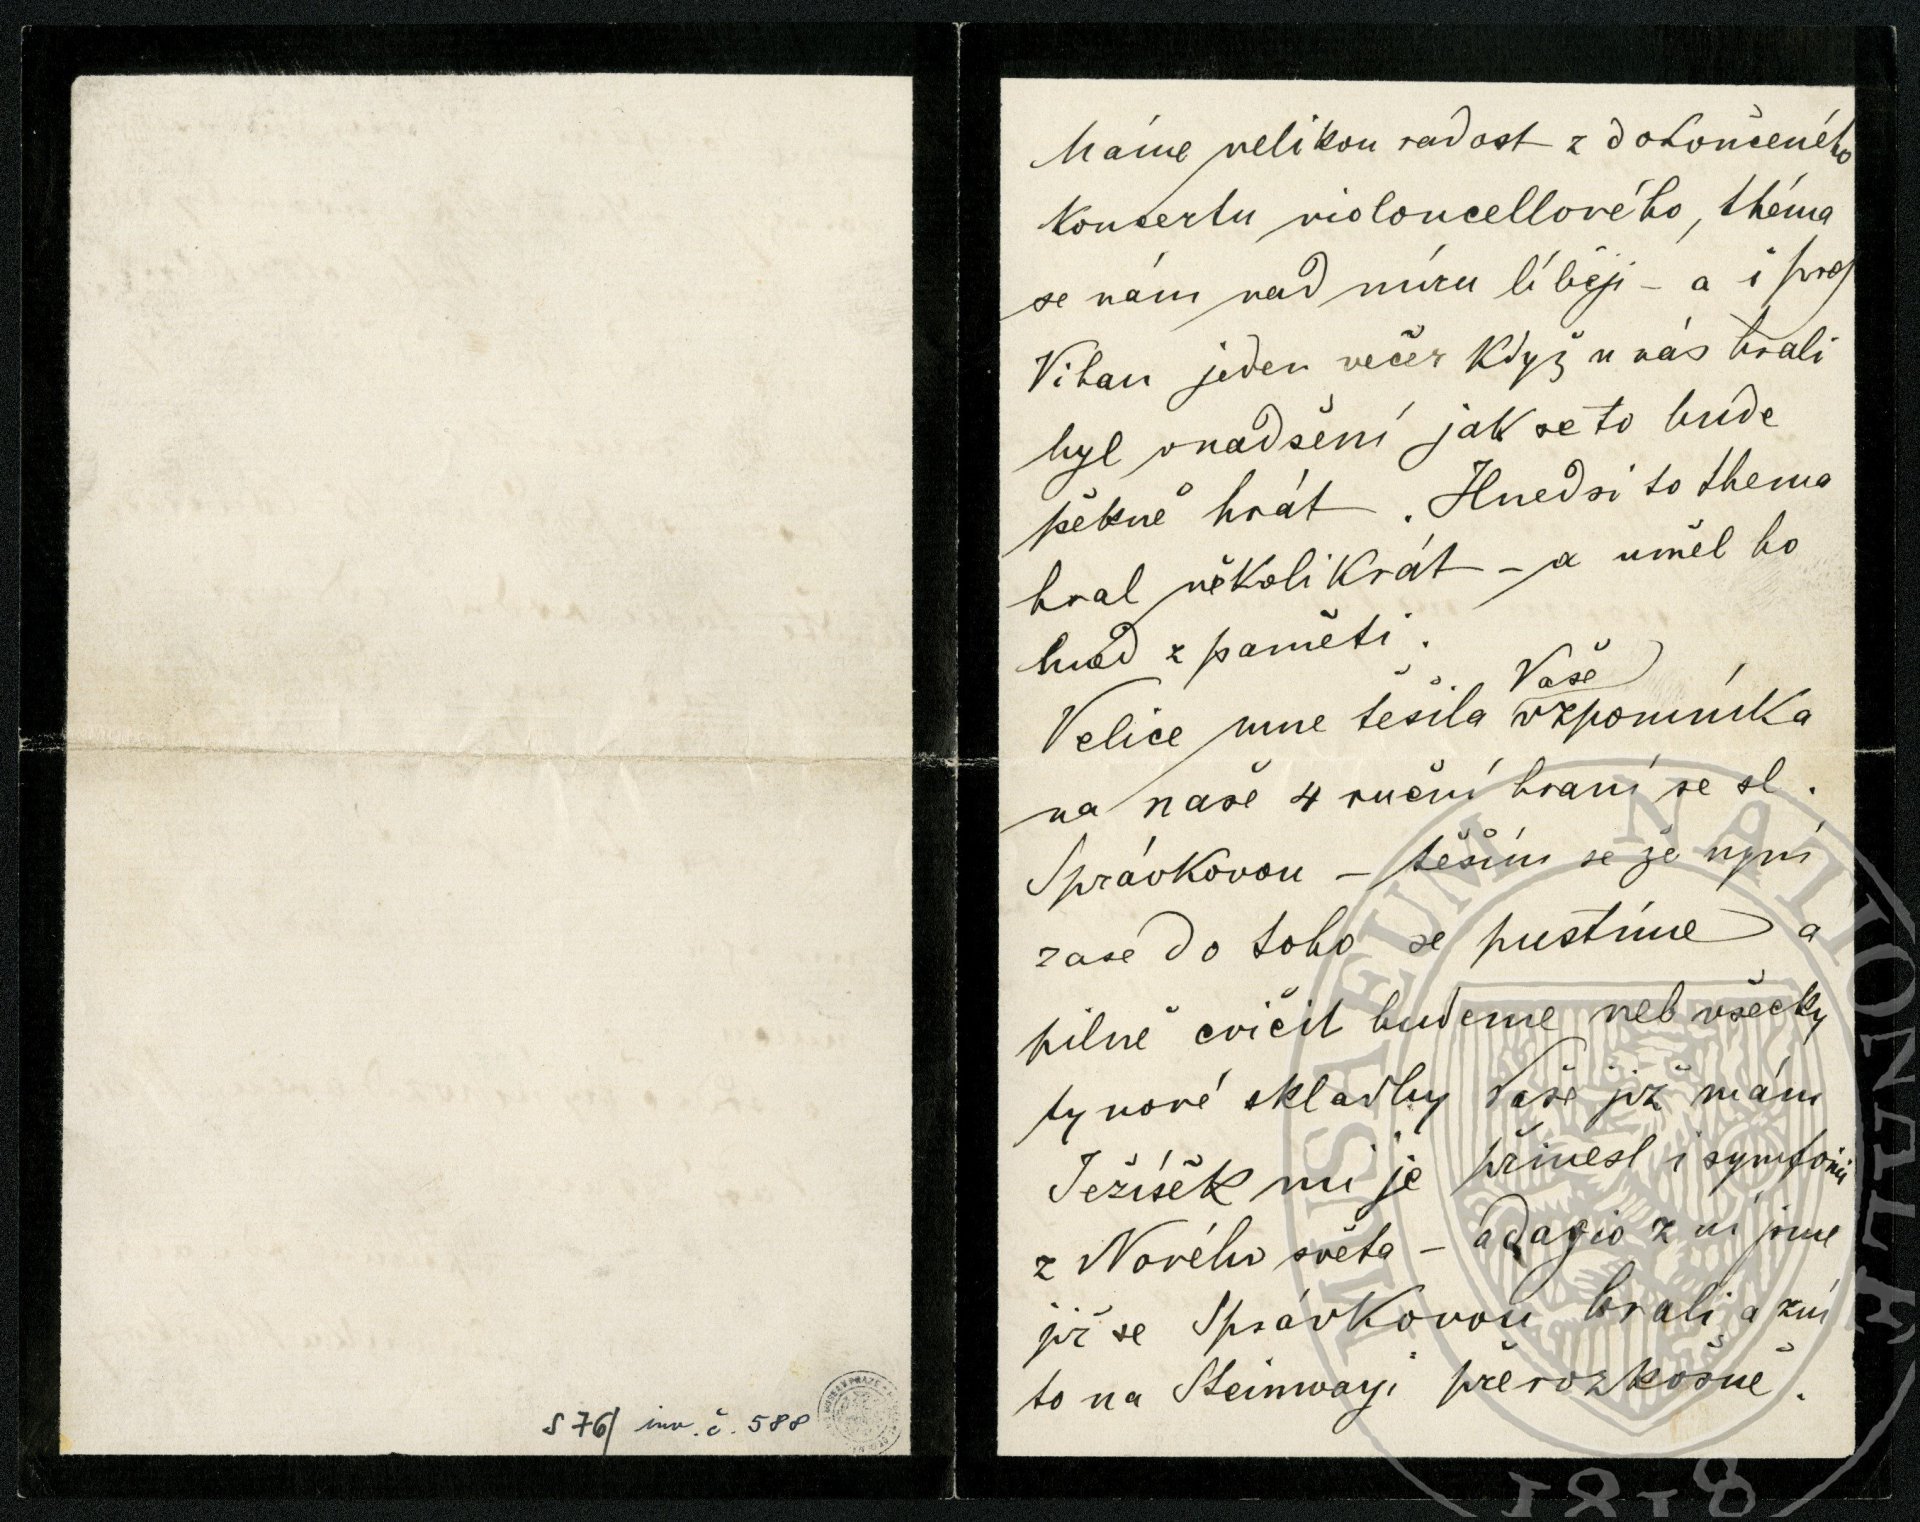 S 76/ inv. č. 588
Máme velikou radost z dokončeného
koncertu violoncellového, théma
se nám nad míru líbéji – a i prof
Vihan jeden večer když u nás hráli
byl v nadšení jak se to bude
pěkně hrát. Hned si to thema
hrál několikrát – a uměl ho
hned z paměti.
Velice mne těšila Vaše vzpomínka
na naše 4 ruční hraní se sl.
Správkovou – těším se že nyní
zase do toho se pustíme a
pilně cvičit budeme neb všecky
ty nové skladby Vaše již mám
Ježíšek mi je přinesl i symfonii
z Nového světa – adagio z ní jsme
již se Správkovou hrali a zní
to na Steinwayi přerozkošně.
MUSAEUM NATIONALE
1818